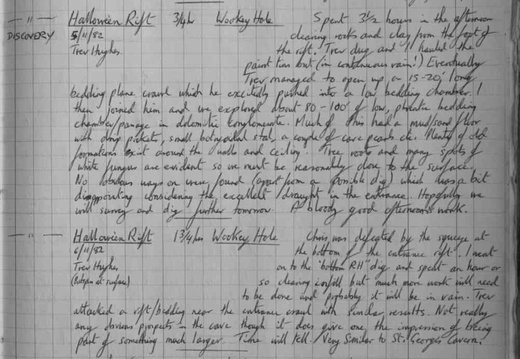 — " — Halloween Rift 3¾hr Wookey Hole Spent 3½ hours in the afternoon
DISCOVERY 5/11/82 clearing rocks and clay from the foot of
Trev Hughes the rift. Trev dug and I hauled the
paint tins out (in continuous rain!) Eventually
Trev managed to open up a 15-20' long
bedding plane crawl which he excitedly pushed into a low bedding chamber. I
then joined him and we explored about 80-100' of low, phreatic bedding
chamber/passage in dolomitic conglomerate. Much of this had a mud/sand floor
with drip pockets, small botryoidal stal, a couple of cave pearls etc. Plenty of old
formations exist around the walls and ceiling. Tree roots and many spots of
white fungus are evident so we must be reasonably close to the surface.
No obvious ways on were found (apart from a possible dig) which was a bit
disappointing considering the excellent draught in the entrance. Hopefully we
will survey and dig further tomorrow. A bloody good afternoons work.
— " — Halloween Rift 1¾hrs Wookey Hole Chris was defeated by the squeeze at
6/11/82 the bottom of the entrance rift. I went
Trev Hughes on to the "bottom RH" dig and spent an hour or
so clearing infill but much more work will need
to be done and probably it will be in vain. Trev
attacked a rift/bedding near the entrance crawl with similar results. Not really
any obvious prospects in the cave though it does give one the impression of being
part of something much larger. Time will tell. Very similar to St. Georges Cavern.